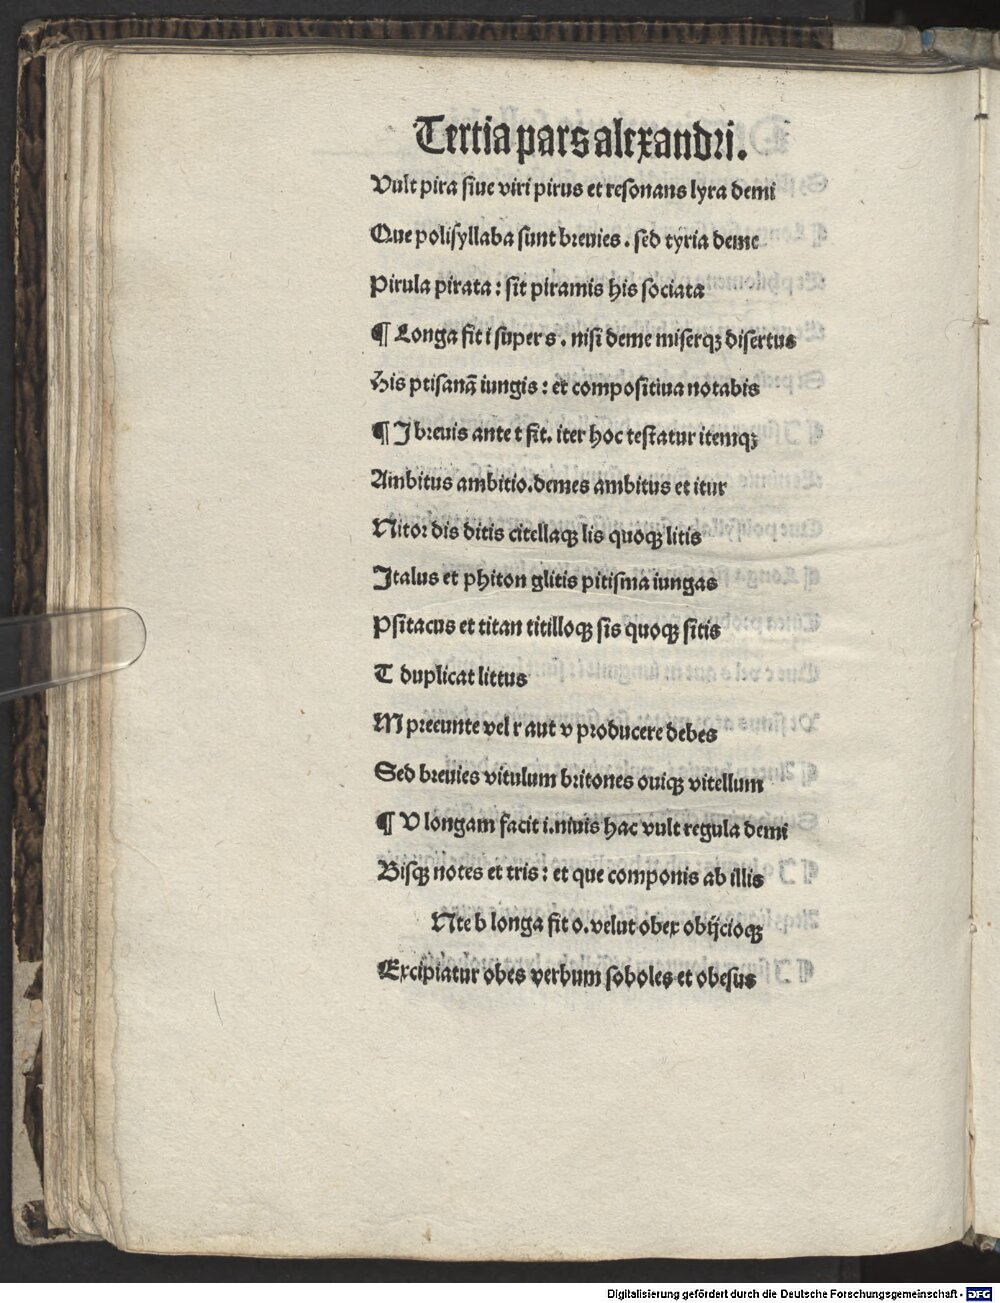 Tertia pars alexandri.
Vult pira siue viri pirus et resonans lyra demi
Que polisyllaba sunt breuies . sed tyria deme
Pirula pirata : sit piramis his sociata
¶ Longa fit i super s . nisi deme miserqꝫ disertus
His ptisanā iungis : et compositiua notabis
¶ I breuis ante t fit. iter hoc testatur itemqꝫ
Ambitus ambitio.demes ambitus et itur
Nitor dis ditis citellaqꝫ lis quoqꝫ litis
Italus et phiton glitis pitisma iungas
Psitacus et titan titilloqꝫ sis quoqꝫ sitis
T duplicat littus
M preeunte vel r aut v producere debes
Sed breuies vitulum britones ouiqꝫ vitellum
¶ V longam facit i.niuis hac vult regula demi
Bisqꝫ notes et tris : et que componis ab illis
Nte b longa fit o.velut obex obijcioqꝫ
Excipiatur obes verbum soboles et obesus
Digitalisierung gefördert durch die Deutsche Forschungsgemeinschaft - DFG